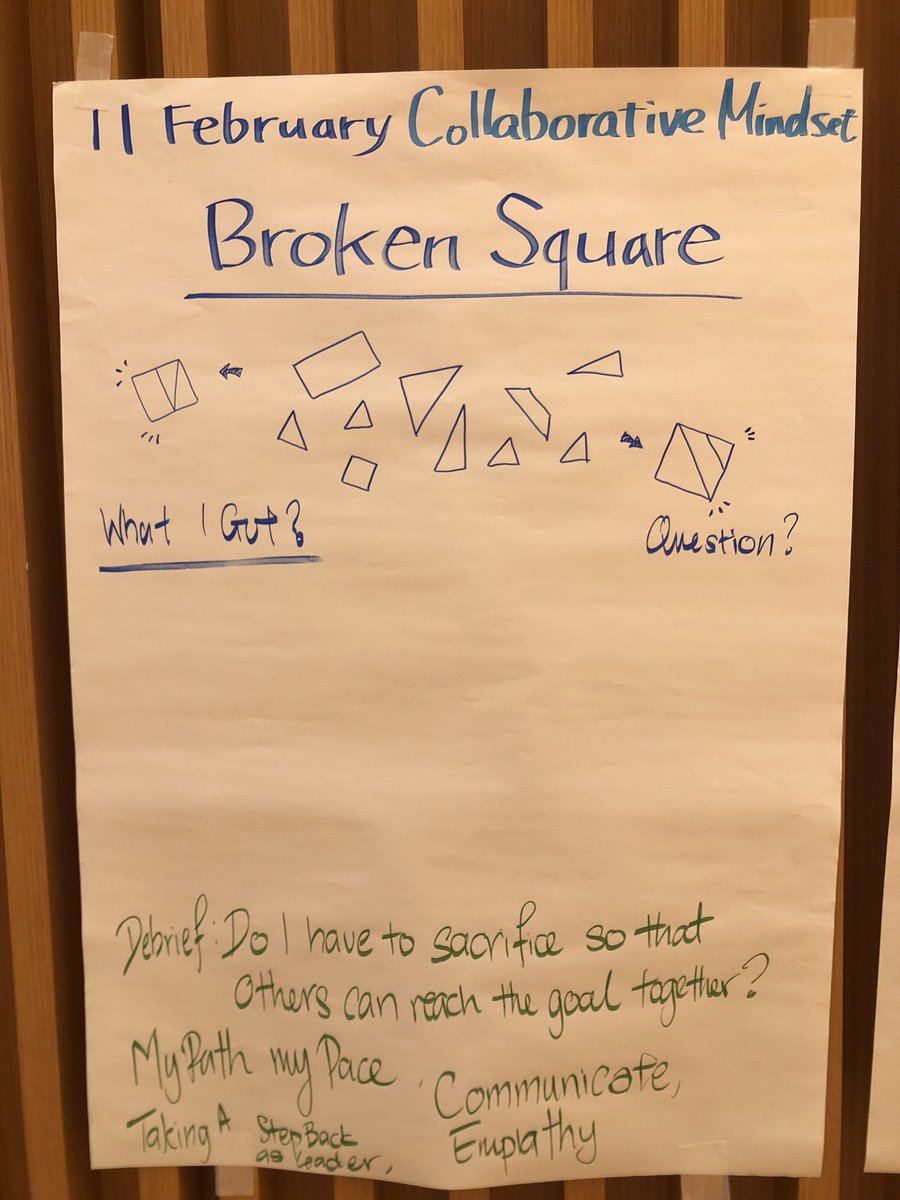 11 February Collaborative Mindset
Broken Square
What I Got?
Question?
Debrief: Do I have to sacrifice so that
others can reach the goal together?
My Path my Pace.
Communicate,
Empathy
Taking A Step Back
as leader,